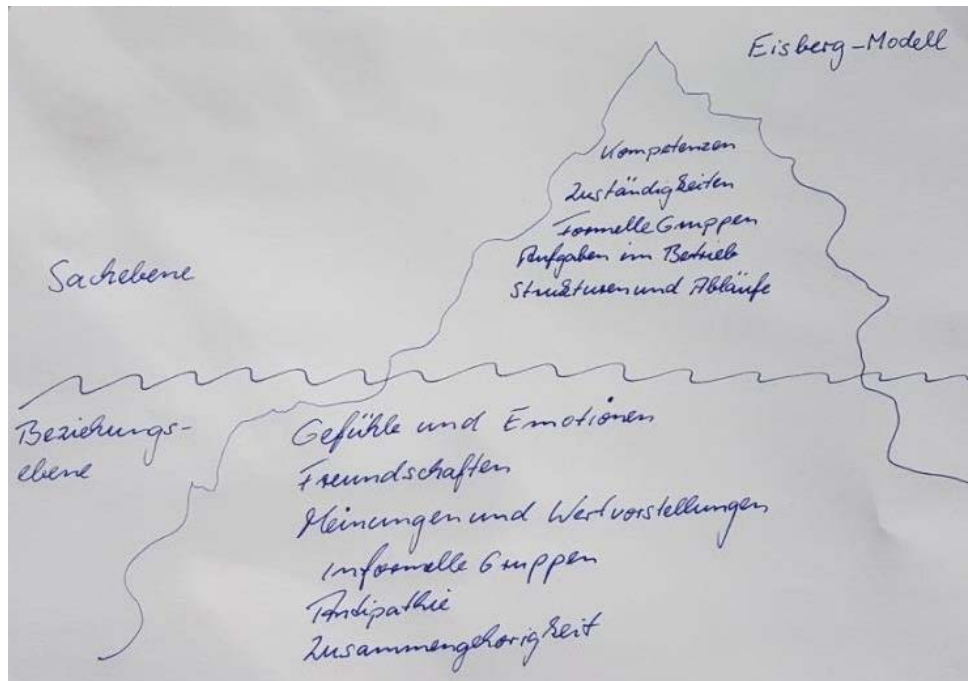 Eisberg-Modell
Kompetenzen
Zuständigkeiten
Formelle Gruppen
Aufgaben im Betrieb
Strukturen und Abläufe
Sachebene
Beziehungs-
ebene
Gefühle und Emotionen
Freundschaften
Meinungen und Wertvorstellungen
Informelle Gruppen
Antipathie
Zusammengehörigkeit